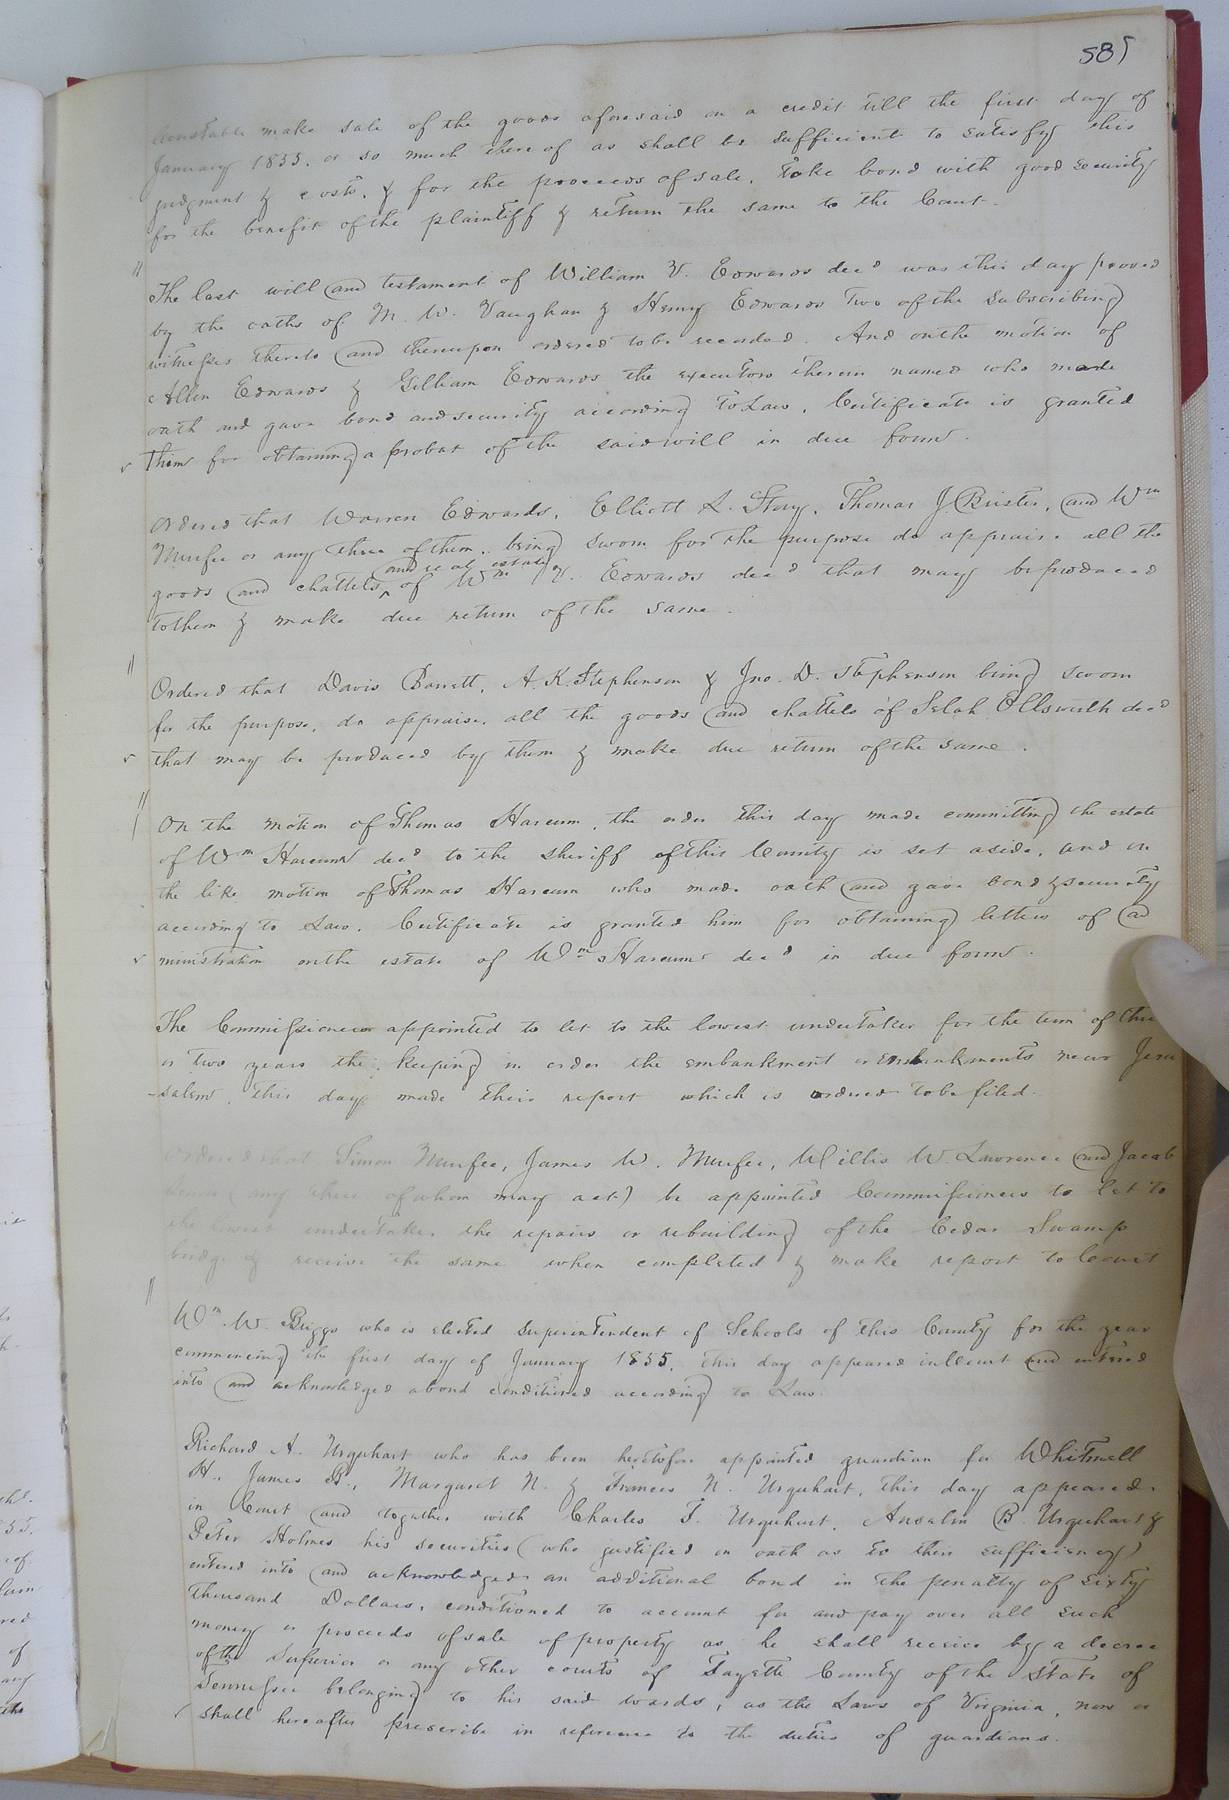 585
Constable make sale of the goods aforesaid on a credit till the first day of
January 1855. or so much thereof as shall be sufficient to satisfy this
judgment & costs, & for the proceeds of sale, take bond with good security
for the benefit of the plaintiff & return the same to the Court.
The last will and testament of William V. Edwards decd was this day proved
by the oaths of M. W. Vaughan & Henry Edwards two of the subscribing
witnesses thereto and thereupon ordered to be recorded. And on the motion of
Allen Edwards & Gilliam Edwards the executors therein named who made
oath and gave bond and security according to Law, Certificate is granted
them for obtaining a probat of the said will in due form.
Ordered that Warren Edwards, Elliott L. Story, Thomas J. Brister, and Wm
Murfee or any three of them, being sworn for the purpose do appraise all the
goods and chattels and real estate of Wm V. Edwards decd that may be produced
to them & make due return of the same.
Ordered that Davis Barrett, A. K. Stephenson & Jno. D. Stephenson being sworn
for the purpose, do appraise, all the goods and chattels of Selah Ollsworth decd
that may be produced by them & make due return of the same.
On the motion of Thomas Harcum, the order this day made committing the estate
of Wm Harcum decd to the sheriff of this County is set aside, and on
the like motion of Thomas Harcum who made oath and gave bond & security
according to Law. Certificate is granted him for obtaining letters of ad
ministration on the estate of Wm Harcum decd in due form.
The Commissioners appointed to let to the lowest undertaker for the term of
or two years the keeping in order the embankment or embankments near Jeru
-salem, this day made their report which is ordered to be filed.
Ordered that Simon Murfee, James W. Murfee, Willis W. Lawrence and Jacob
(any three of whom may act) be appointed Commissioners to let to
the lowest undertaker the repairs or rebuilding of the Cedar Swamp
bridge & receive the same when completed & make report to Court
Wm. W. Briggs who is elected Superintendent of Schools of this County for the year
commencing the first day of January 1855, this day appeared in Court and entered
into and acknowledged a bond conditioned according to Law.
Richard A. Urquhart who has been heretofore appointed guardian for Whitmell
H., James B., Margaret N. & Frances N. Urquhart, this day appeared
in Court and together with Charles F. Urquhart, Anselm B. Urquhart &
Peter Holmes his securities (who justified on oath as to their sufficiency)
entered into and acknowledged an additional bond in the penalty of sixty
thousand Dollars, conditioned to account for and pay over all such
money or proceeds of sale of property as he shall receive by a decree
of the Superior or any other courts of Fayette County of the State of
Tennessee belonging to his said wards, as the Laws of Virginia, now or
shall hereafter prescribe in reference to the duties of guardians.